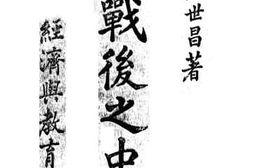 世昌著
戰後之中
經濟與教育